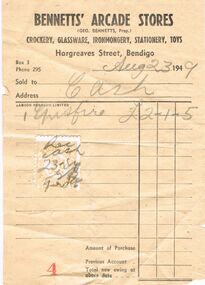 BENNETTS' ARCADE STORES
(GEO. BENNETTS, Prop.)
CROCKERY, GLASSWARE, IRONMONGERY, STATIONERY, TOYS
Hargreaves Street, Bendigo
Box 3
Phone 295
Aug 23 1949
Sold to Cash
Address
1 £2-1-5
Rec
Cash
Amount of Purchase
Previous Account
Total now owing at
above date
4